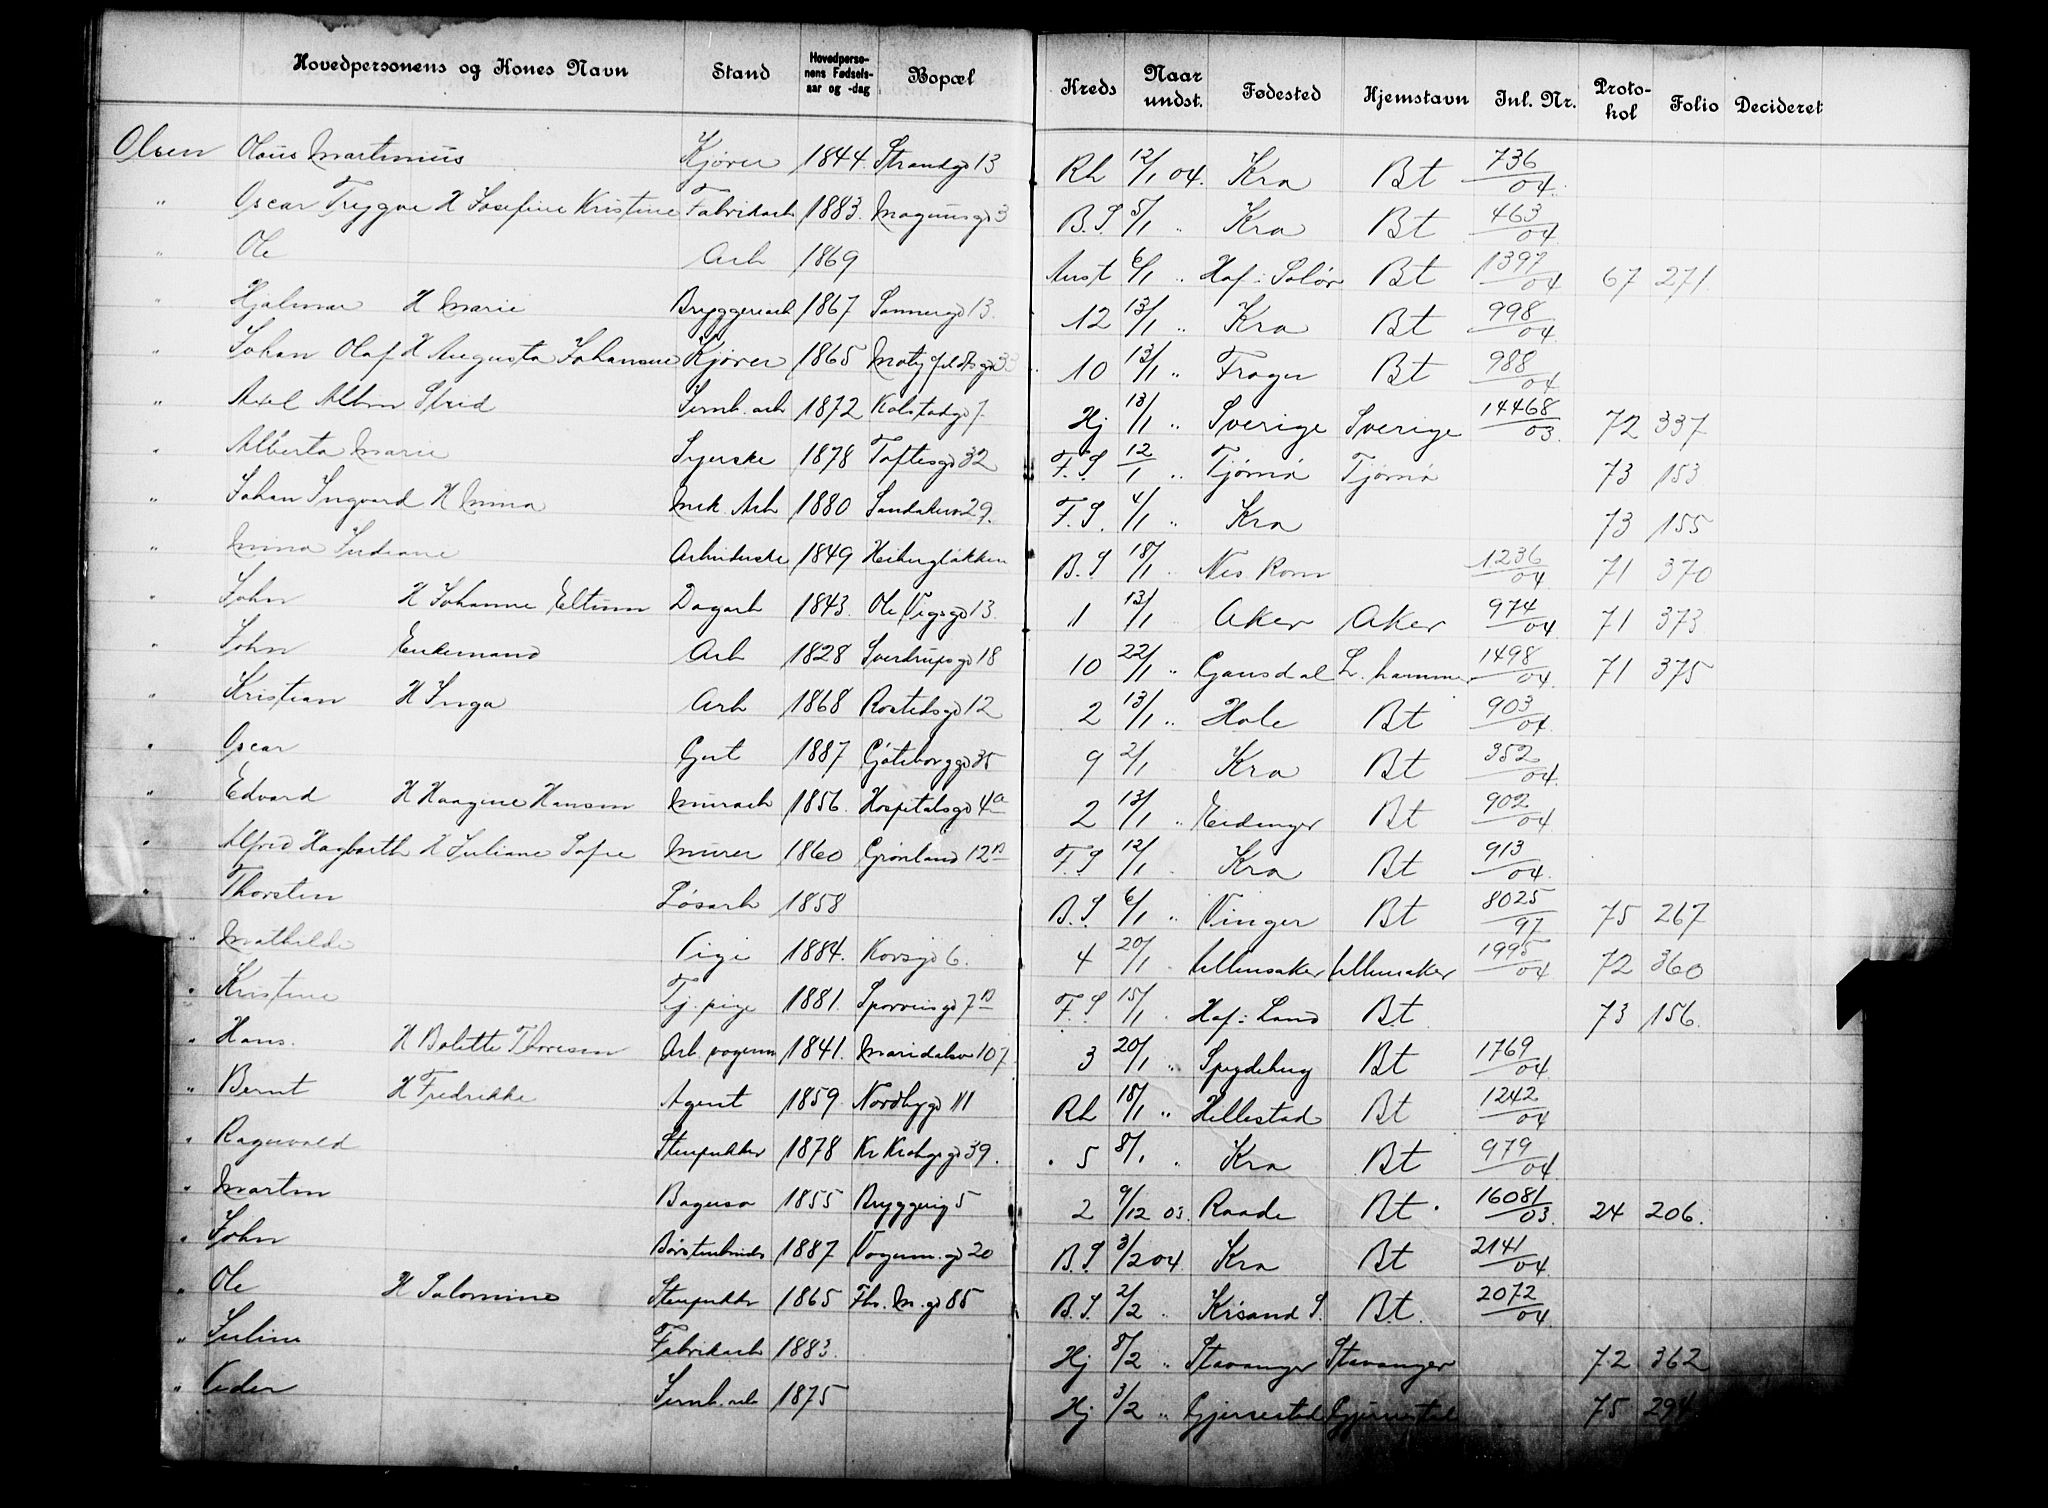 Hovedpersonens og Kones Navn Stand Hovedperso-nens Fødsels-aar og -dag Bopæl Kreds Naar undst. Fødested Hjemstavn Inl. Nr. Proto-kol Folio Decideret
Olsen Olaus Martinius Kjører 1844. Strandgd 13 Rh 12/1 04. Kra Bt 736/04.
" Oscar Trygve H Josefine Kristine Fabrikarb 1883. Magnusgd 3 B.S 5/1 " Kra Bt 463/04
" Ole Arb 1869 Anst 6/1 " Hof i Solør Bt 1397/04 67 271.
" Hjalmar H Marie Bryggeriarb 1867 Sannergd 13. 12 13/1 " Kra Bt 998/04.
" Johan Olaf H Augusta Johansen Kjører 1865 Motzfeldtsgd 33 10 13/1 " Frogn Bt 988/04
" Axel Albin Strid Jernb. arb 1872 Kolstadgd 7. Hj 13/1 " Sverige Sverige 14468/03. 72 337
" Alberta Marie Syerske 1878 Toftesgd 32 F.S 12/1 " Tjømø Tjømø 73 153
" Johan Ingvard H Anna Mek. Arb 1880 Sandakerv 29. F.S. 4/1 " Kra 73 155
" Mina Indiane Arbeiderske 1849 Heibergløkken B.S 18/1 Nes Rom 1236/04 71 370
" John H Johanne Eltunn Dagarb 1843. Ole Vigsgd 13. 1 13/1 Aker Aker 974/04. 71 373
" John Enkemand Arb 1828 Sverdrupsgd 18 10 22/1 " Gausdal L. hammer 1498/04. 71 375
" Kristian H Inga Arb 1868 Rostedsgd 12 2 13/1 " Hole Bt 903/04
" Oscar Gut 1887 Gøteborggd 35 9 2/1 Kra Bt 352/04.
" Edvard H Haagine Hansen Murarb 1856. Hospitalsgd 4a 2 13/1 " Eidanger Bt 902/04
" Alfred Hagbarth H Juliane Sofie Murer 1860 Grønland 12B F.S 12/1 Kra Bt 913/04.
" Thorsten Løsarb 1858 B.S. 6/1 " Vinger Bt 8025/97 75 267
" Mathilde Pige 1884. Korsgd 6. 4 20/1 Ullensaker Ullensaker 1995/04 72 360
" Kristine Tj. pige 1881. Sporveisgd 7B F.S 15/1 Hof i Land Bt 73 156.
" Hans. H Bolette Thoresen Arb. vognm 1841. Maridalsv 107. 3 20/1 " Spydeberg Bt 1769/04.
" Bernt H Fredrikke Agent 1859. Nordbygd 11 Rh 18/1 " Hillestad Bt 1242/04
" Ragnvald Stenpukker 1878 Kr Kroghsgd 39. 5 8/1 " Kra Bt 979/04.
" Martin Bagersv 1855 Bryggerig 5 2 9/12 03. Raade Bt. 16081/03. 24 206.
" John Børstenbinder 1887 Vognm. gd 20 B.S. 3/2 04. Kra Bt 2141/04.
" Ole H Salomine Stenpukker 1865 Th. M. gd 85 B.S. 2/2 " Krisand S. Bt. 2072/04.
" Juline Fabrikarb 1883. Hj 8/2 " Stavanger Stavanger 72 362
" Peder Jernb. arb 1875 Hj 3/2 " Gjerrestad Gjerrestad 75 294